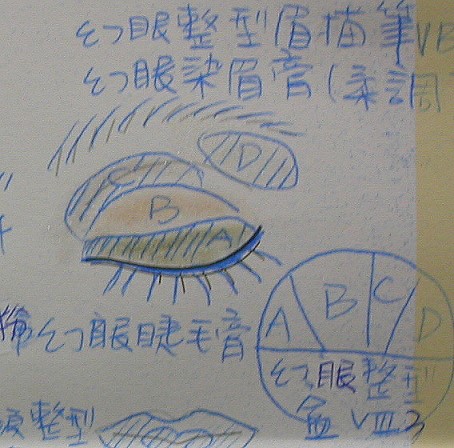 幻眼整型眉描筆VE
幻眼染眉膏(柔調
C
D
B
A
幻眼睫毛膏
A B C D
幻眼整型
盒 VIII3
整型